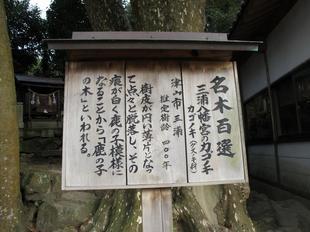 名木百選
三浦八幡宮のカゴノキ
カゴノキ(クスノキ科)
津山市 三浦
推定樹齢 四〇〇年
樹皮が円い薄片となっ
て点々と脱落し、その
痕が白く鹿の子模様に
なることから「鹿の子
の木」といわれる。